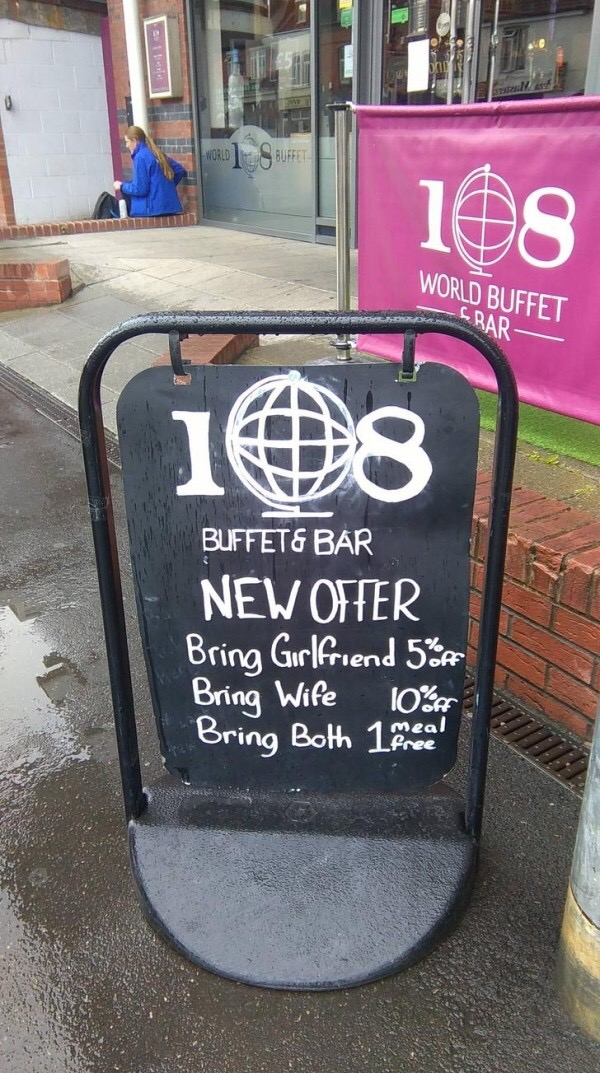 WORLD 108 BUFFET
108
WORLD BUFFET
& BAR
108
BUFFET & BAR
NEW OFFER
Bring Girlfriend 5% off
Bring Wife 10% off
Bring Both 1 meal free